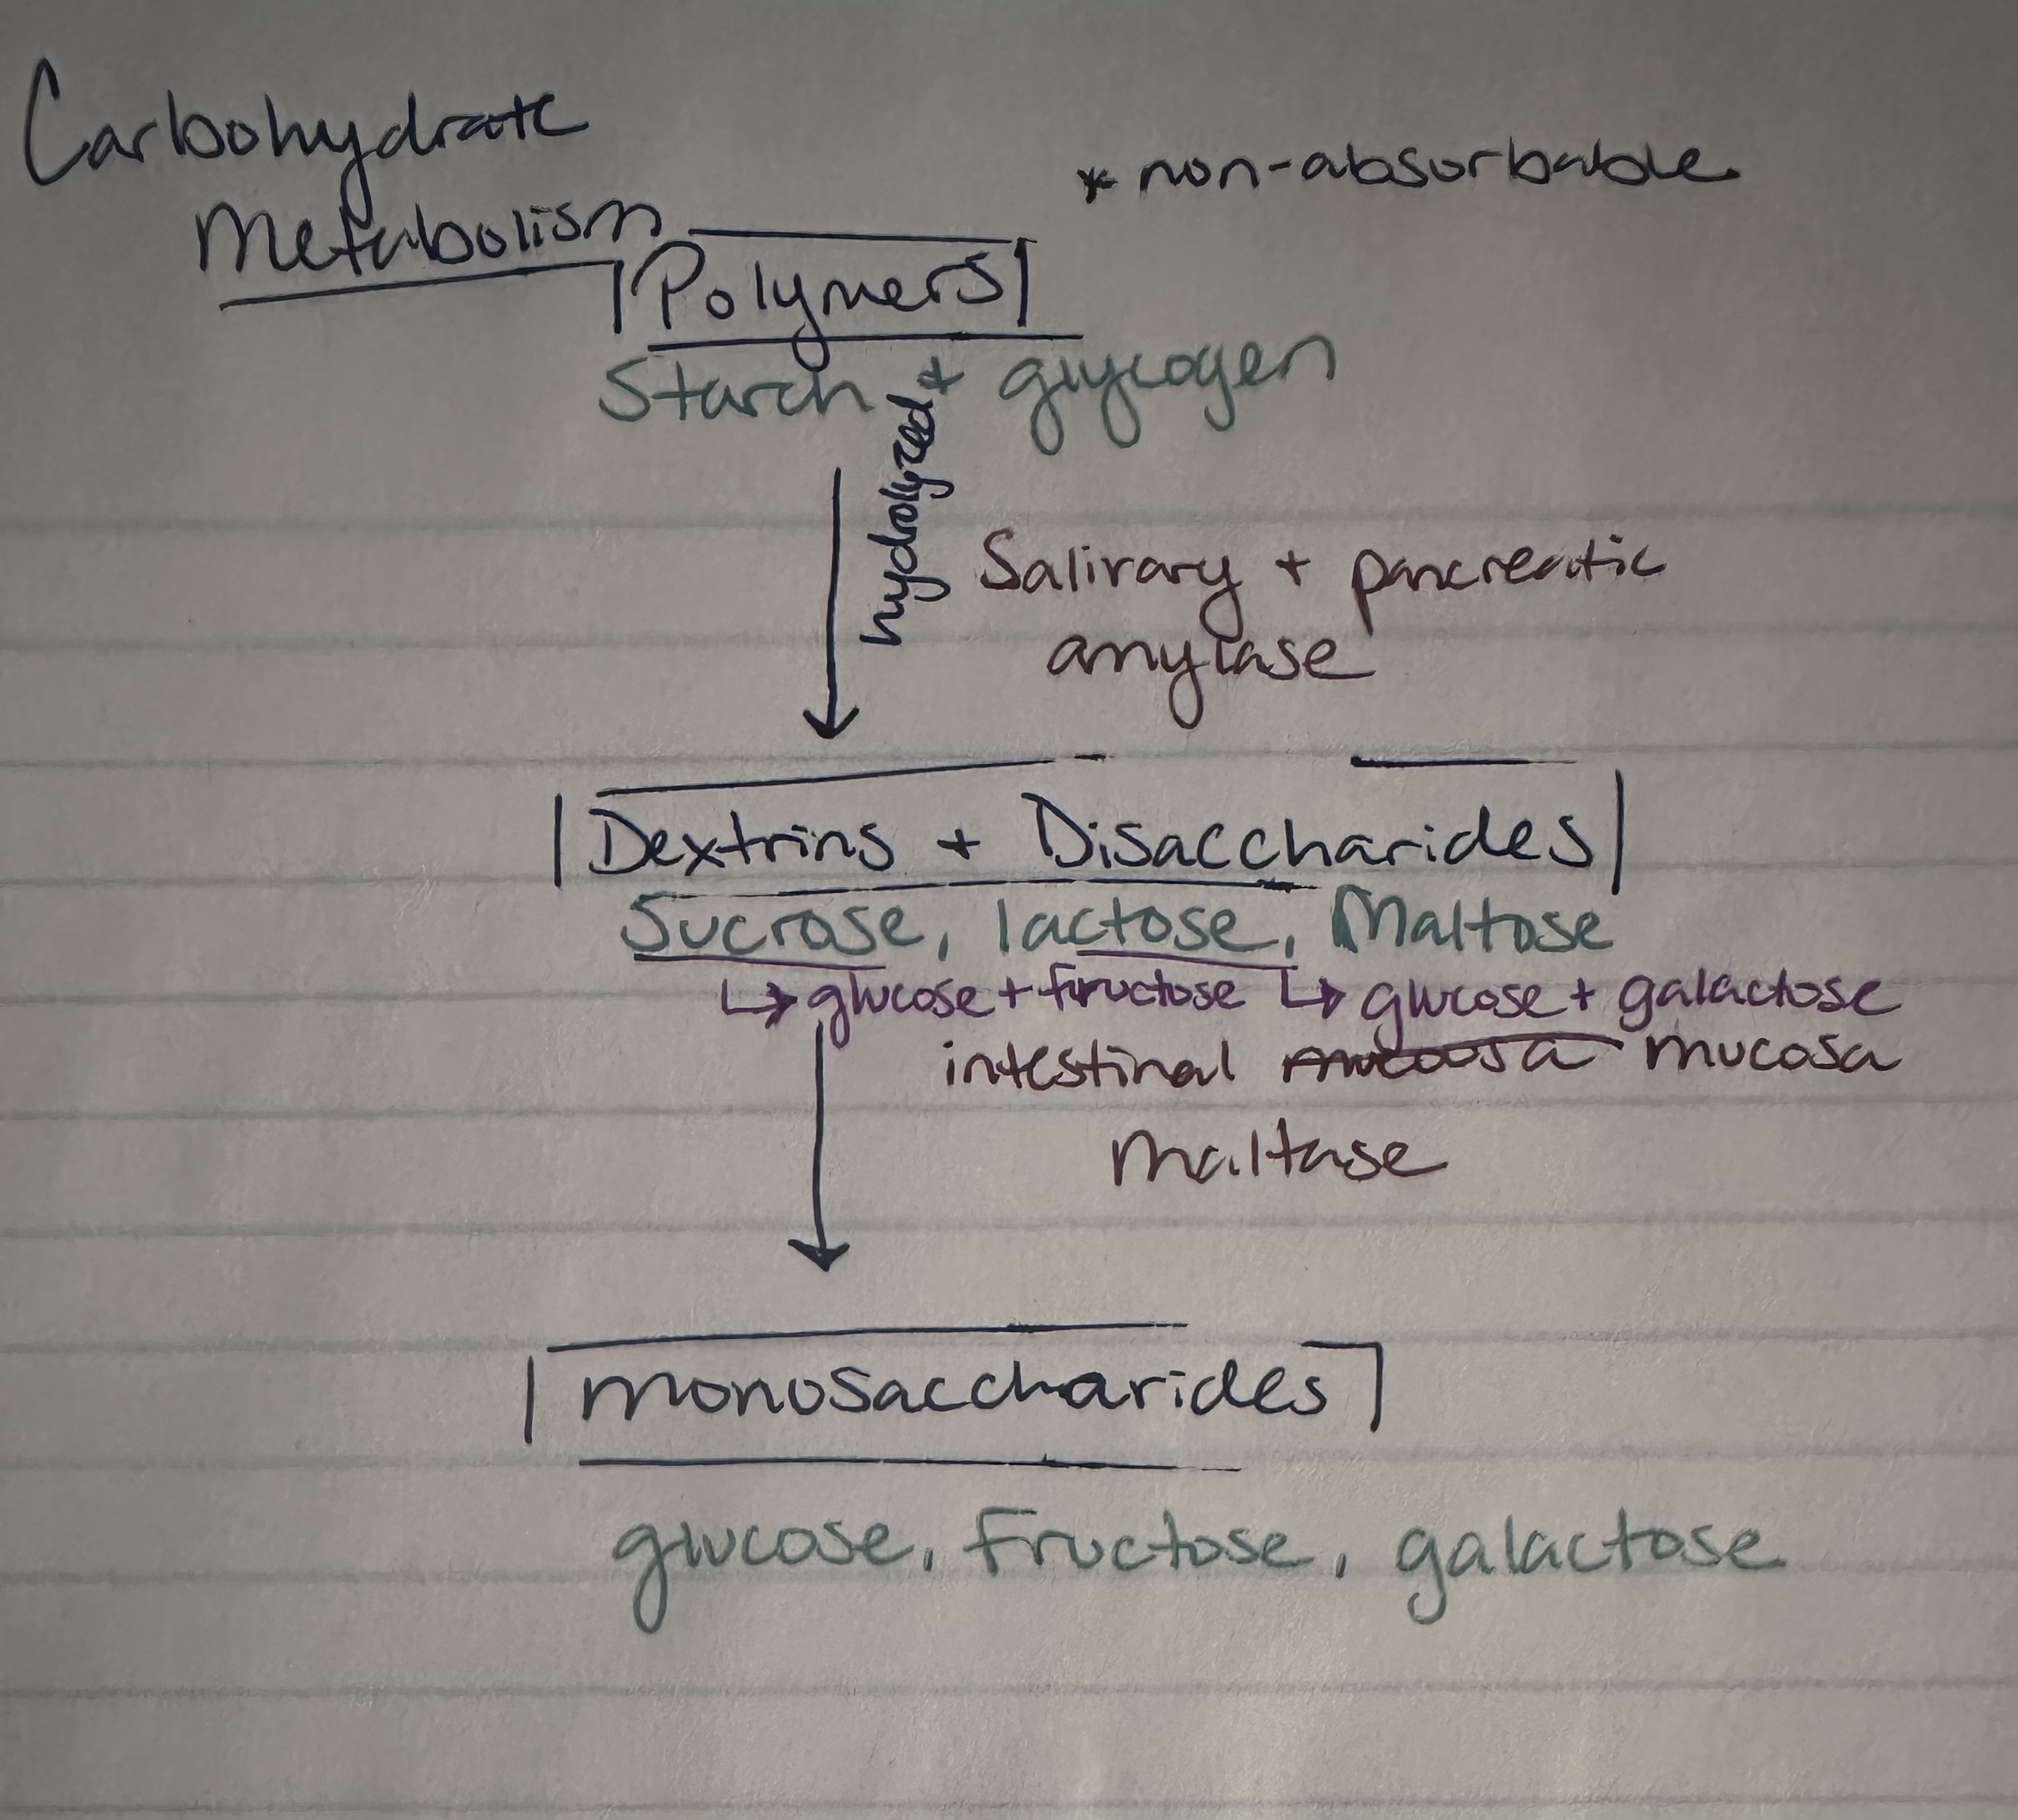 Carbohydrate
Metabolism
* non-absorbable
Polymers
Starch + glycogen
hydrolyzed
Salivary + pancreatic
amylase
Dextrins + Disaccharides
Sucrose, lactose, Maltose
↳ glucose + fructose ↳ glucose + galactose
intestinal mucosa mucosa
maltase
monosaccharides
glucose, fructose, galactose